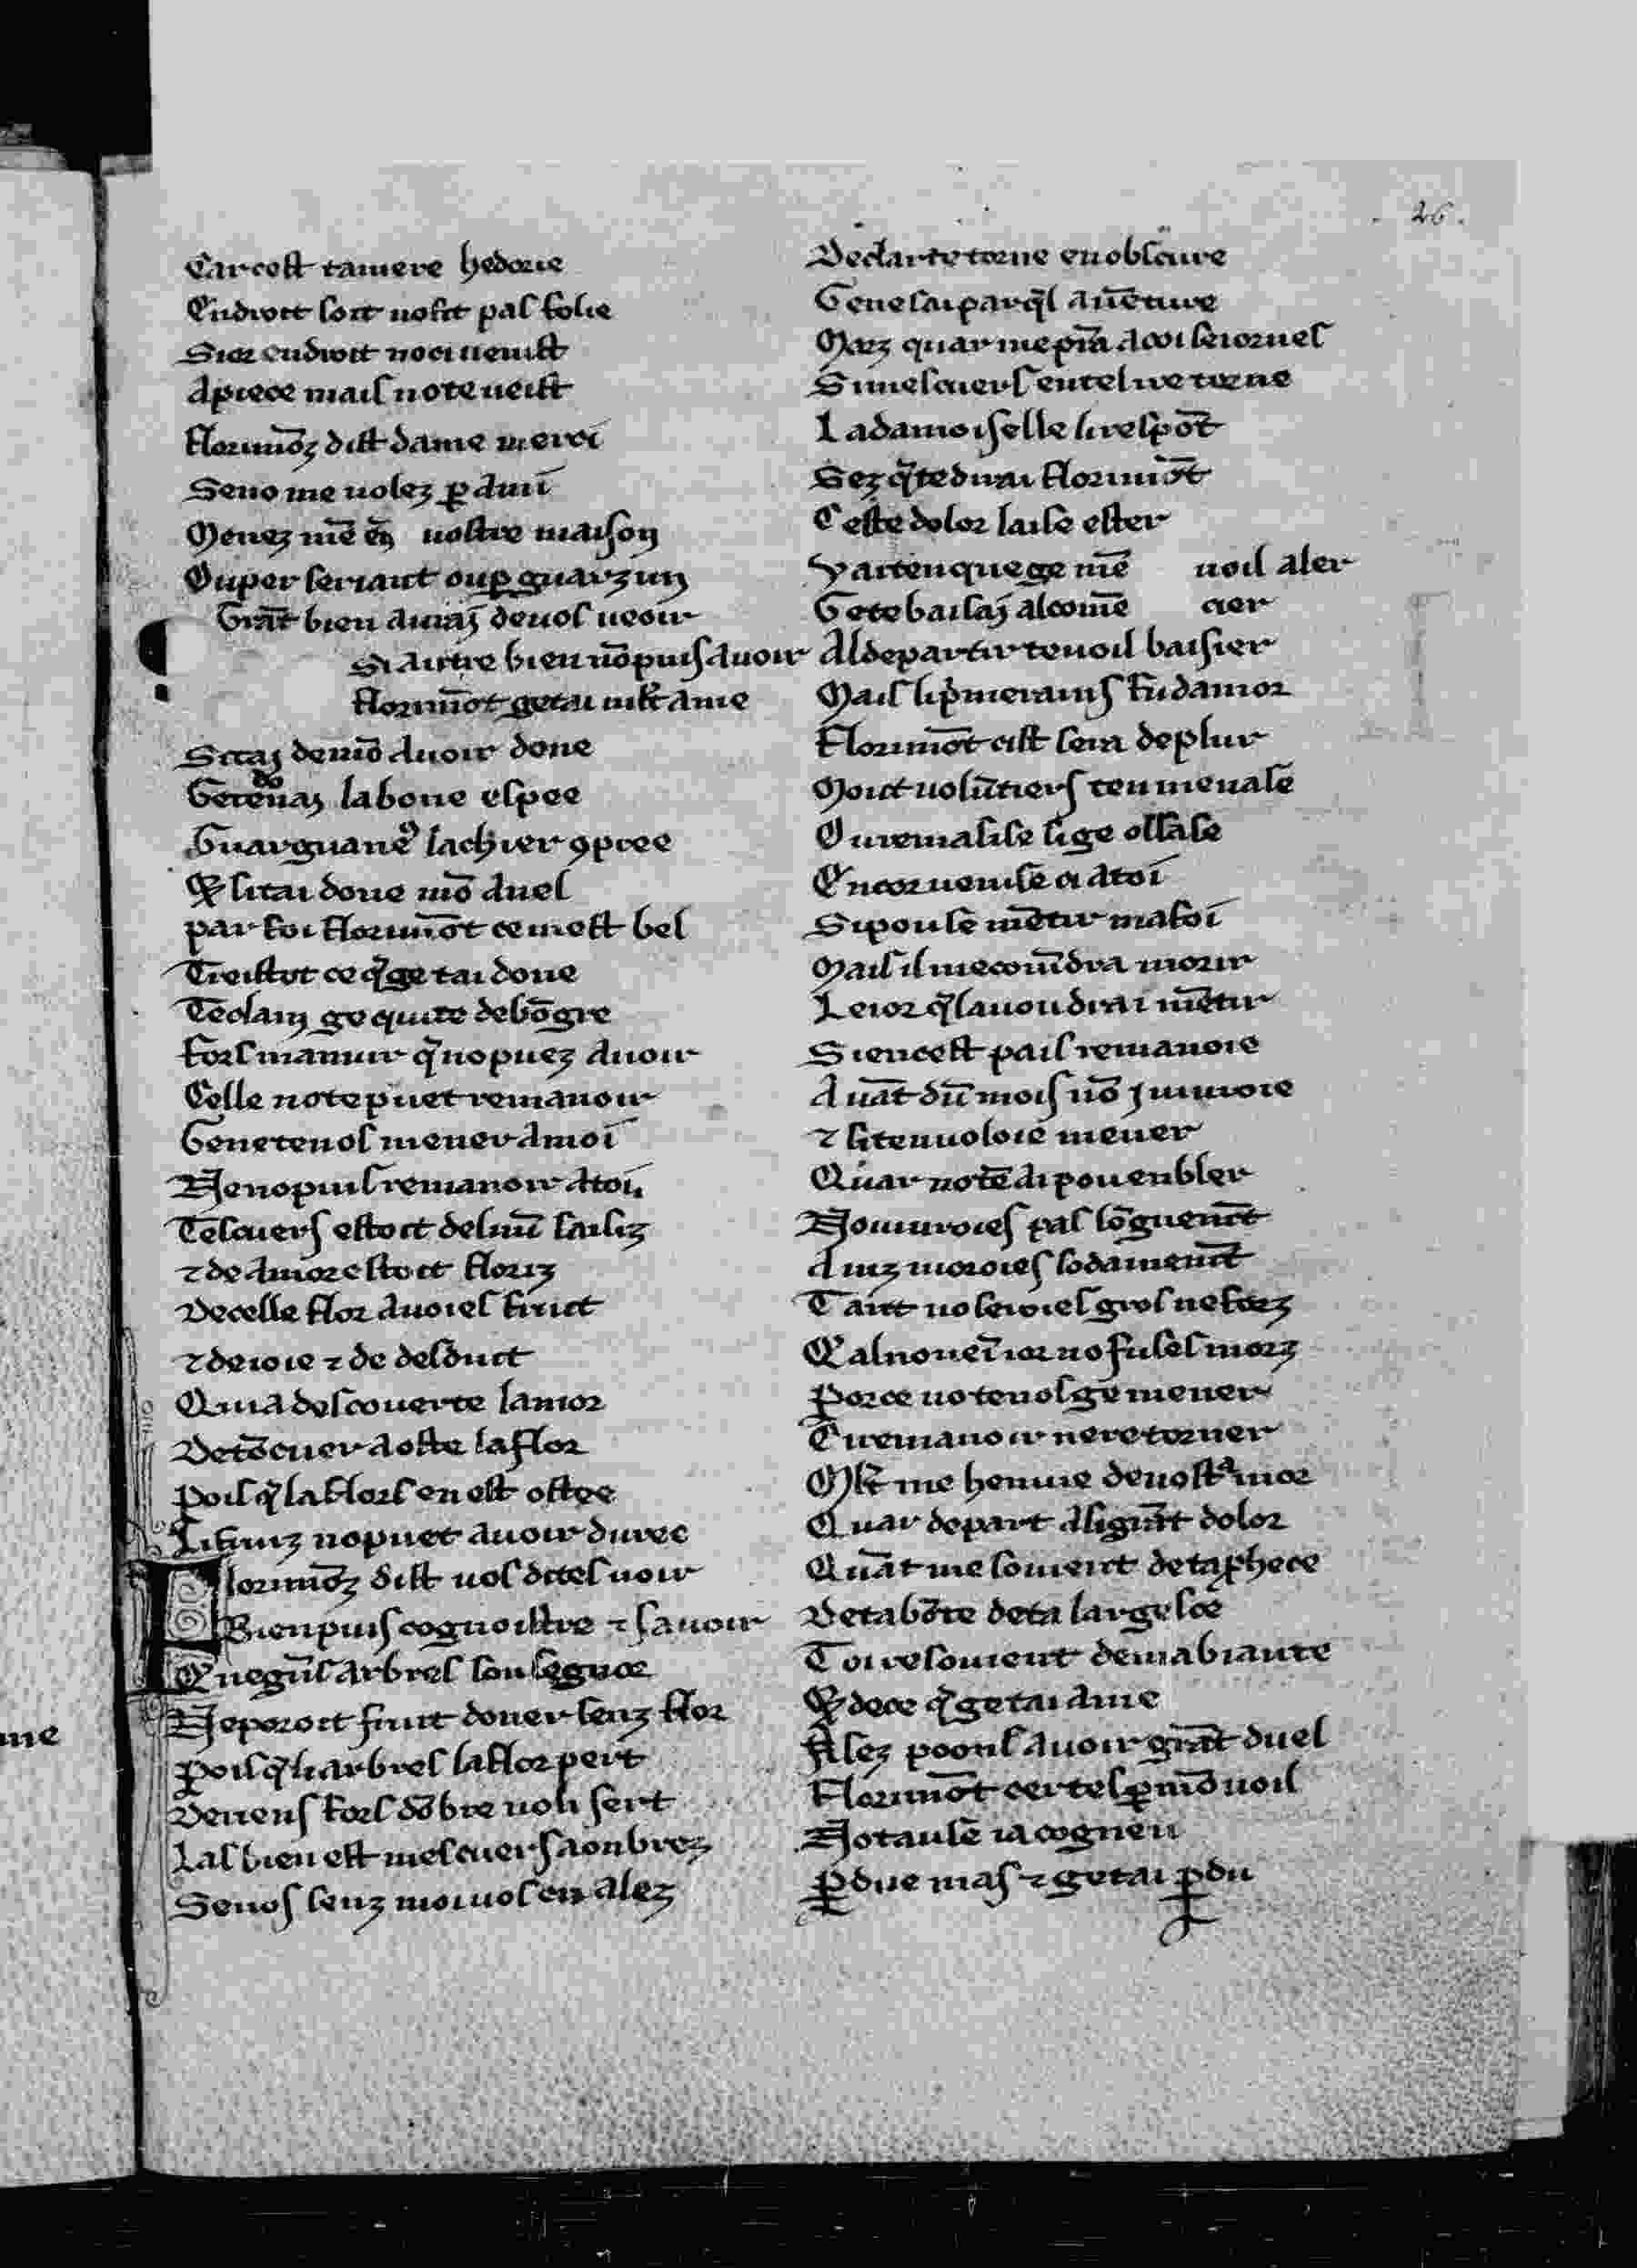 26.
Car cest ta mere hedorie
Endroit soit nofit pas folie
Sior endroit noci uenist
Apiece mais note ueist
Florimōz dist dame merci
Seno me uolez ꝑ ami
Menez mē en̄ uostre maison
Ou per seriant ou ꝑ guarzun
Grāt bien auraj de uos ueoir
Si autre bien nō puis auoir
Florimōt ge tai mlt ame
Si taj de mō auoir done
Ge te donaj la bone espee
Guarguaneꝰ lachier ꝯpree
Q̄ si tai done mō anel
par foi florimōt ce mest bel
Trestot ce q̄ ge tai done
Te claim ge quite de bō gre
Fors mamur q̄ no puez auoir
Celle note puet remanoir
Ge ne te uos mener a moi
Ne no puis remanoir a toi
Tes cuers estoit de mī saisiz
⁊ de amor estoit floriz
De celle flor auoies fruict
⁊ de ioie ⁊ de desduct
Qui a descouerte lamor
De tō cuer a oste la flor
Pois q̄ la flors en est ostee
Li fruiz no puet auoir duree
Florimōz dist uos dites uoir
Bien puis cognoistre ⁊ sauoir
Que gūs arbres son segnor
Ne poroit fruit doner senz flor
Pois q̄ li arbres la flor pert
De uens fors dōbre no li sert
Las bien est mes cuers aonbrez
Se uos senz moi uos en alez
De clarte torne en obscure
Ge ne sai par q̄l auēture
Marz quar me prā a coi seiornes
Si mes cuers en tel ire torne
La damoiselle li respōt
Sez q̄ te dirai florimōt
Ceste dolor laise ester
Varten que ge mē uoil aler
Ge te baisaj al comē cier
Al departir te uoil baisier
Mais li pͥmerains fu damor
Florimōt cist sera de plur
Moit uolūtiers ten menase
Ou remasise si ge ossase
Encor uenise ci a toi
Si pouse mētir ma foi
Mais il me couīdra morir
Le ior q̄ la uoudrai mētir
Si en cest pais remanoie
Auāt dū mois nō j uiuroie
⁊ si ten uoloie mener
Quar note ai pou enbler
No uiuroies pas lōguemēt
Ainz moroies sodainemēt
Tant no seroies gros ne forz
Qal nouē ior no fuses morz
Por ce no te uos ge mener
Tu remanoir ne retorner
Mlt me henuie de uost amor
Quar depart a si grāt dolor
Quāt me souient de ta ꝓhece
De ta bōte de ta largesce
Toi resouient de ma biaute
Q̄ de ce q̄ ge tai ame
Asez poons auoir grāt duel
Florimōt certes ꝑ mō uoil
No tause ia cogneu
ꝑdue mas ⁊ ge tai ꝑdu